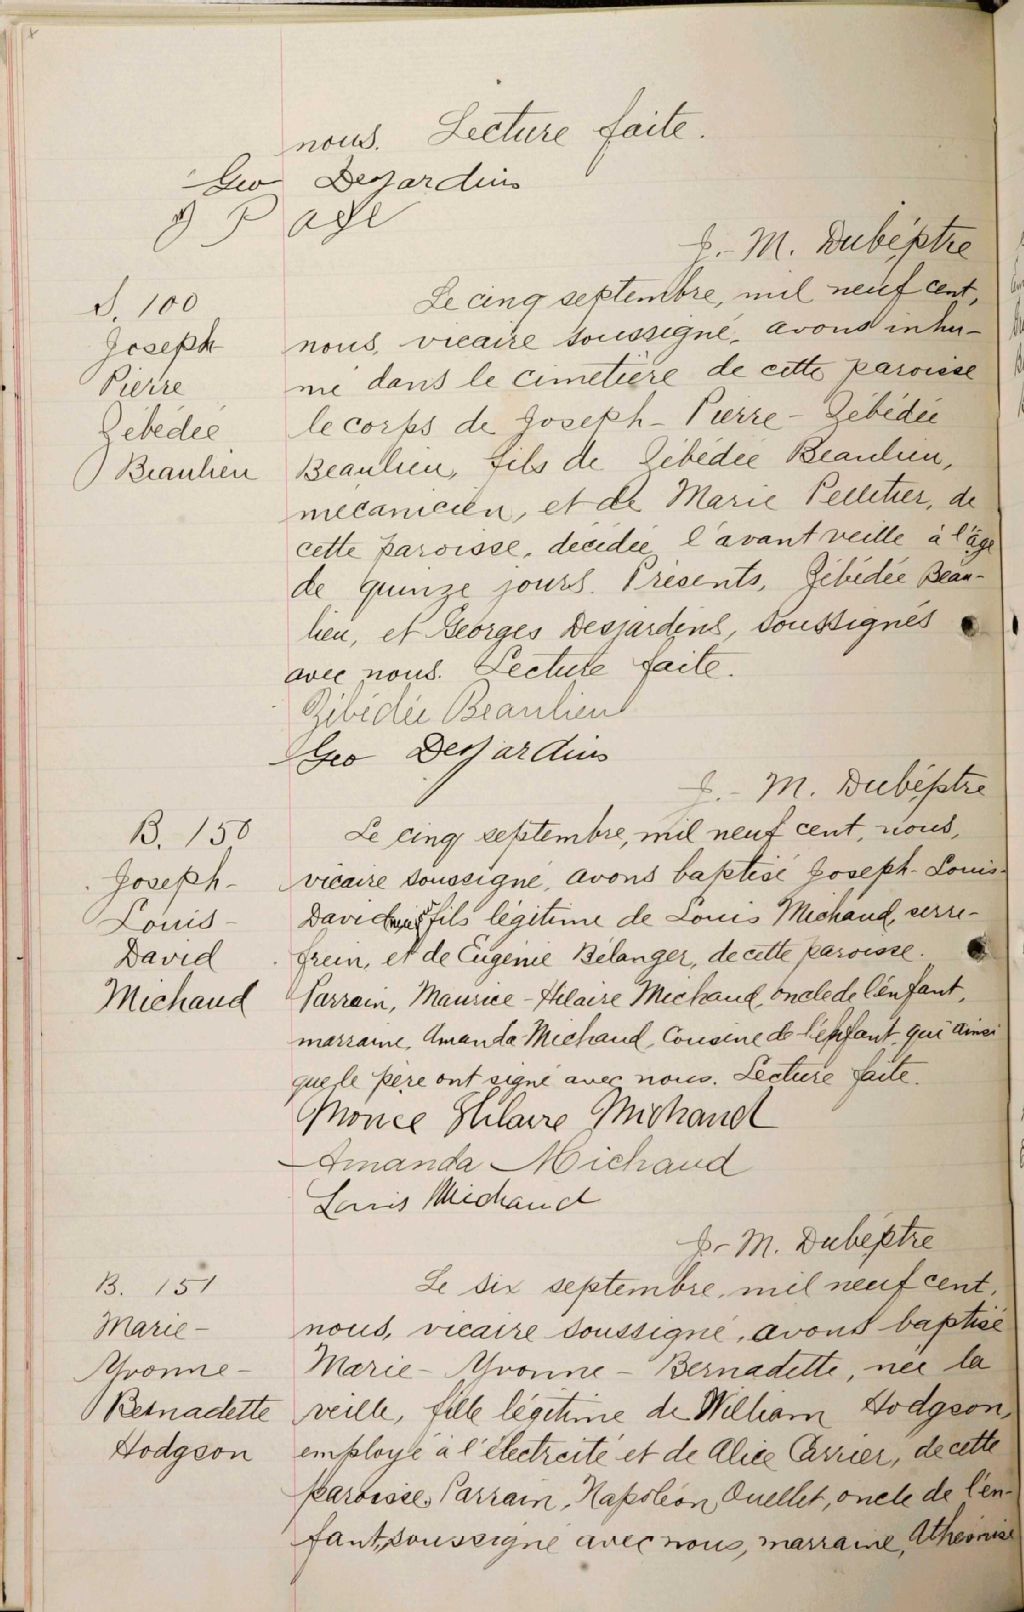 nous. Lecture faite.
Geo Desjardins
J.-M. Dubé, ptre
S. 100
Joseph
Pierre
Zébédée
Beaulieu
Le cinq septembre, mil neuf cent,
nous, vicaire soussigné, avons inhu-
mé dans le cimetière de cette paroisse
le corps de Joseph-Pierre-Zébédée
Beaulieu, fils de Zébédée Beaulieu,
mécanicien, et de Marie Pelletier, de
cette paroisse, décédé l'avant veille à l'âge
de quinze jours. Présents, Zébédée Beau-
lieu, et Georges Desjardins, soussignés
avec nous. Lecture faite.
Zébédée Beaulieu
Geo Desjardins
J.-M. Dubé, ptre
B. 150
Joseph-
Louis-
David
Michaud
Le cinq septembre, mil neuf cent, nous,
vicaire soussigné, avons baptisé Joseph-Louis-
David fils légitime de Louis Michaud, serre-
frein, et de Eugénie Bélanger, de cette paroisse.
Parrain, Maurice-Hilaire Michaud, oncle de l'enfant,
marraine, Amanda Michaud, cousine de l'enfant, qui ainsi
que le père ont signé avec nous. Lecture faite.
Morice Hilaire Michaud
Amanda Michaud
Louis Michaud
J.-M. Dubé, ptre
B. 151
Marie-
Yvonne-
Bernadette
Hodgson
Le six septembre, mil neuf cent,
nous, vicaire soussigné, avons baptisé
Marie-Yvonne-Bernadette, née la
veille, fille légitime de William Hodgson,
employé à l'électricité et de Alice Carrier, de cette
paroisse. Parrain, Napoléon Ouellet, oncle de l'en-
fant, soussigné avec nous, marraine,